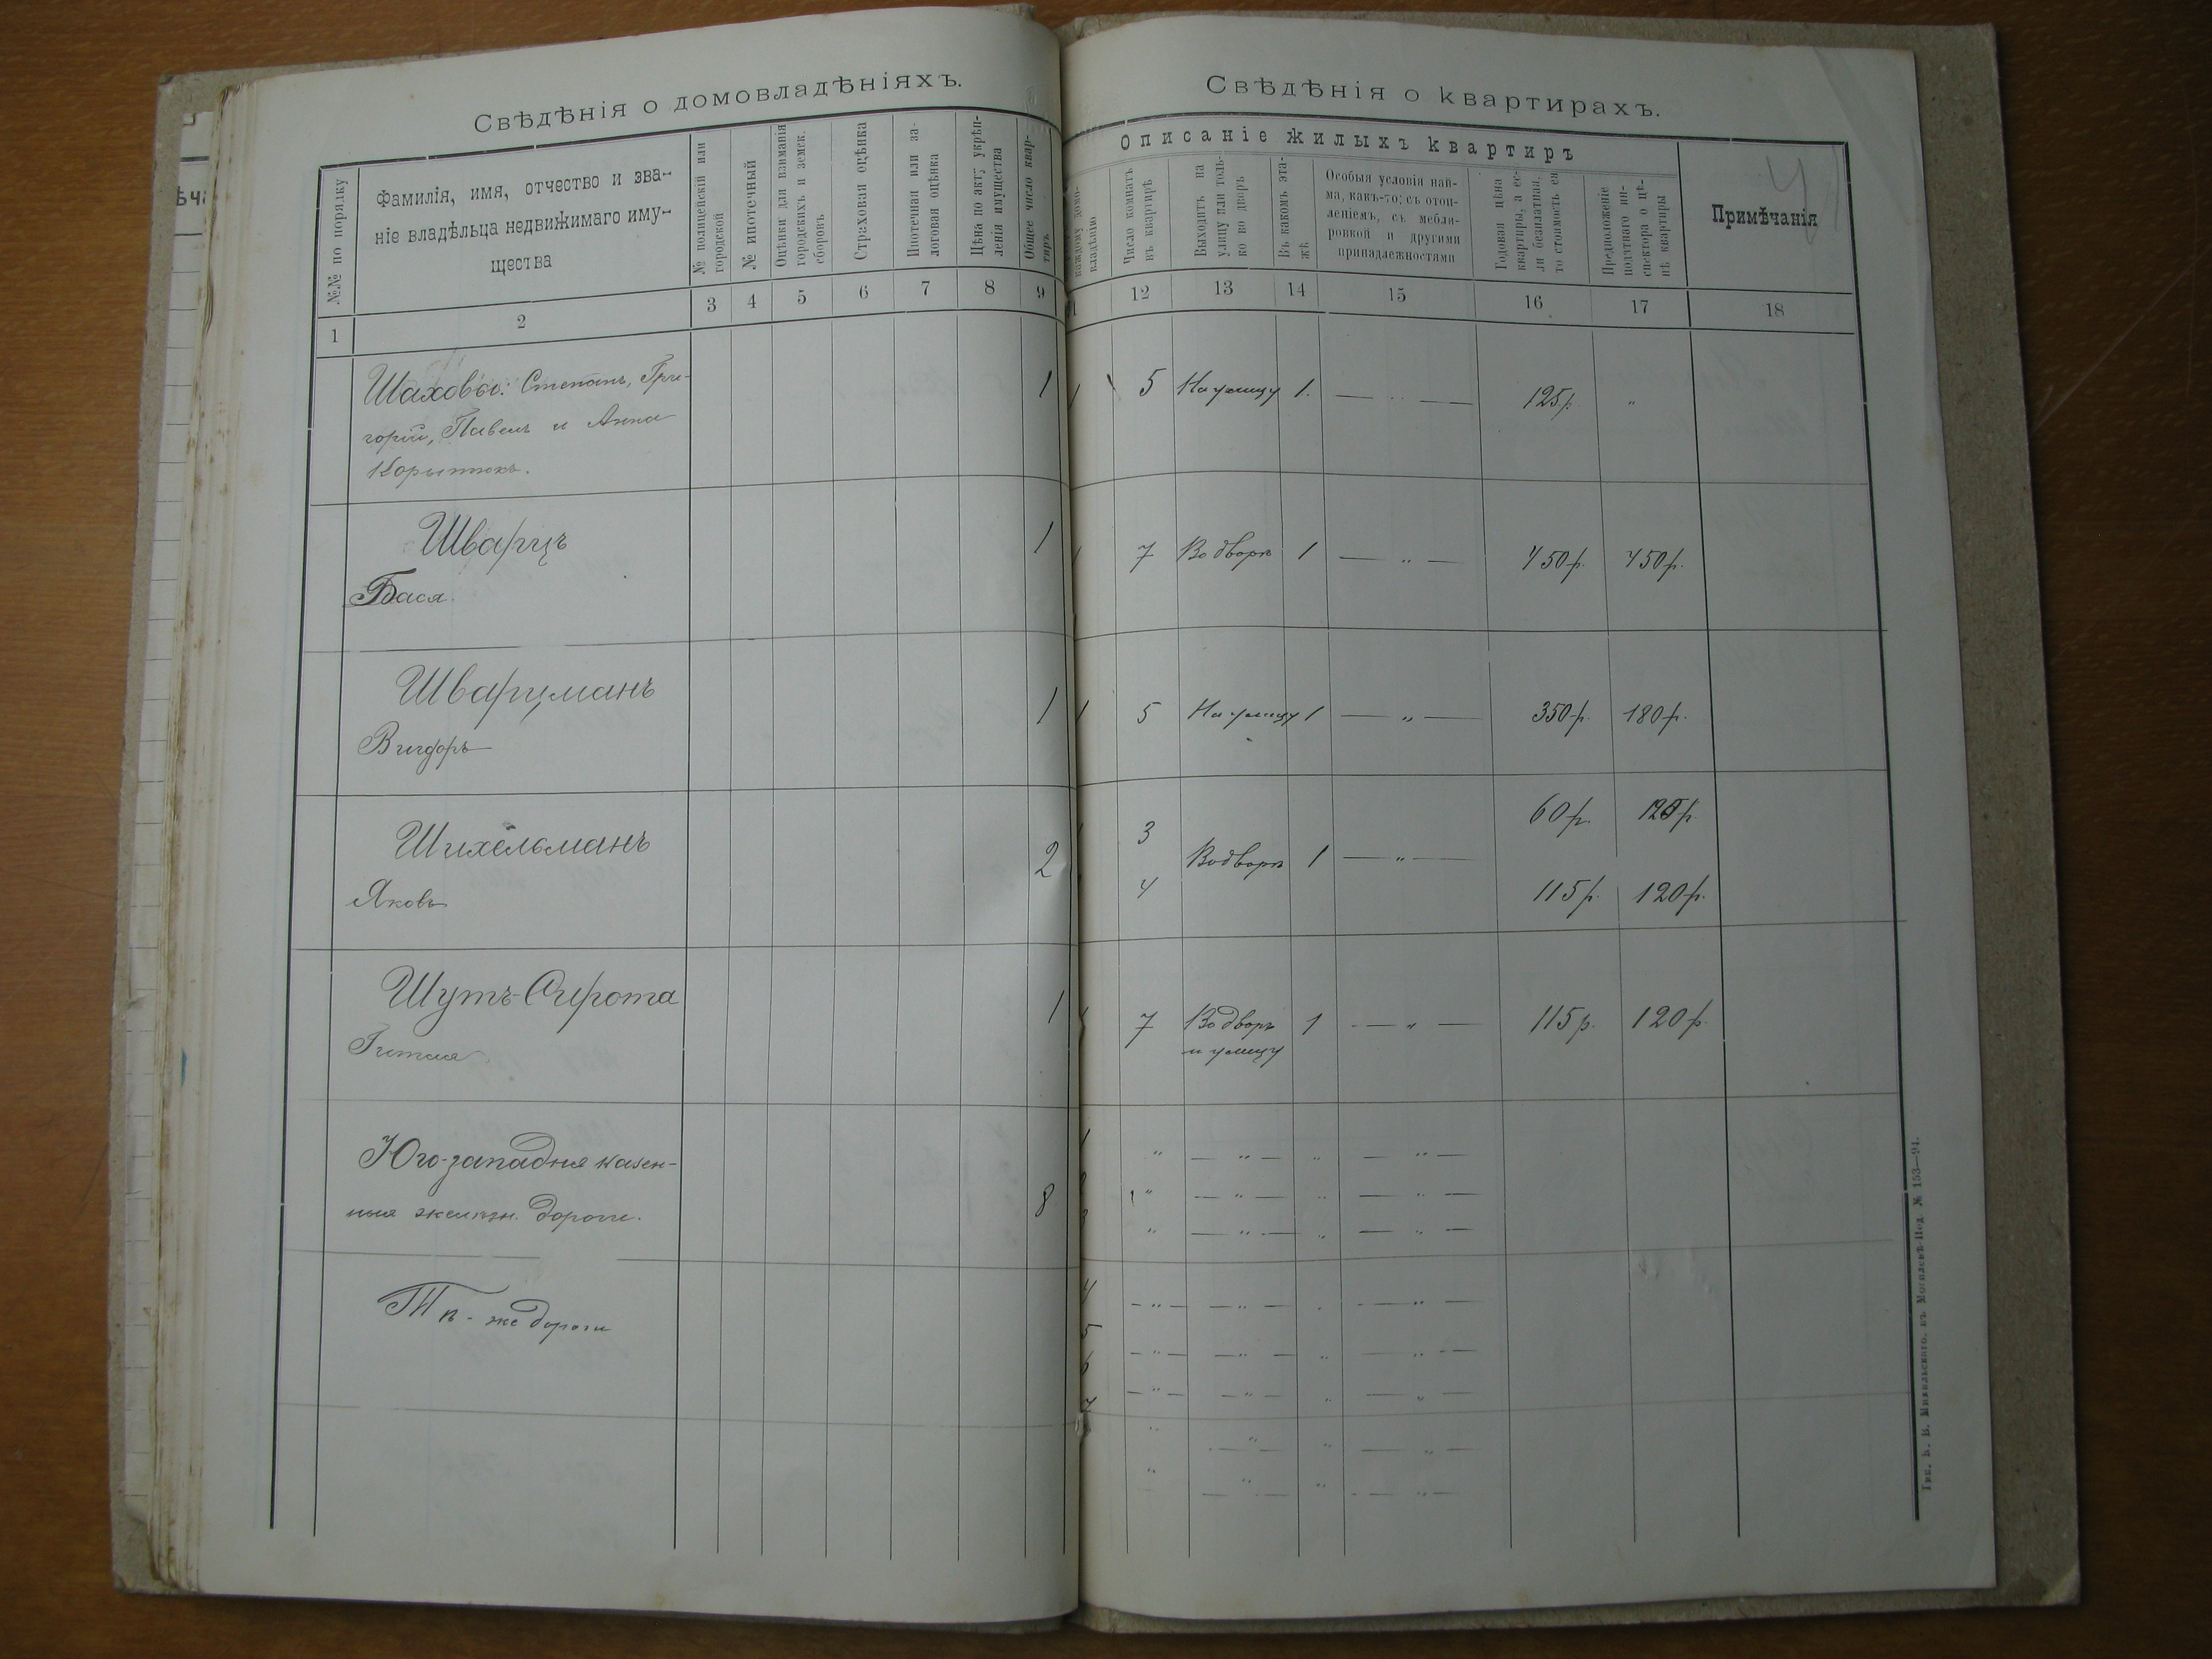 Свѣдѣнія о домовладѣніяхъ.
№№ по порядку
Фамилія, имя, отчество и зва-
ніе владѣльца недвижимаго иму-
щества
№ полицейскій или
городской
№ ипотечный
Оцѣнки для взиманія
городскихъ и земск.
сборовъ
Страховая оцѣнка
Ипотечная или за-
логовая оцѣнка
Цѣна по акту укрѣп-
ленія имущества
Общее число квар-
тиръ
1 2 3 4 5 6 7 8 9
Шаховы: Степанъ, Гри-
горій, Павелъ и Анна
1
Шварцъ
Бася
1
Шварцманъ
Вигдоръ
1
Шихельманъ
Яковъ
2
Шутъ-Сирота
Гитля
1
Юго-западныя казен-
ныя желѣзн. дороги.
8
Тѣ-же дороги
Свѣдѣнія о квартирахъ.
Описаніе жилыхъ квартиръ
каждому домо-
владѣнію
Число комнатъ
въ квартирѣ
Выходитъ на
улицу или толь-
ко во дворъ
Въ какомъ эта-
жѣ
Особыя условія най-
ма, какъ-то: съ отоп-
леніемъ, съ мебли-
ровкой и другими
принадлежностями
Годовая цѣна
квартиры, а ес-
ли безплатная,
то стоимость ея
Предположеніе
податнаго ин-
спектора о цѣ-
нѣ квартиры
Примѣчанія
12 13 14 15 16 17 18
1 5 На улицу 1. — " — 125р. "
1 7 Во дворъ 1 — " — 450р. 450р.
1 5 На улицу 1 — " — 350р. 180р.
3 60р. 120р.
Во дворъ 1 — " —
4 115р. 120р.
7 Во дворъ 1 — " — 115р. 120р.
и улицу
1 " — " — " — " —
" — " — " — " —
3 " — " — " — " —
4 — " — — " — " — " —
5 — " — — " — " — " —
6 — " — — " — " — " —
" — " — " — " —
" — " — " — " —